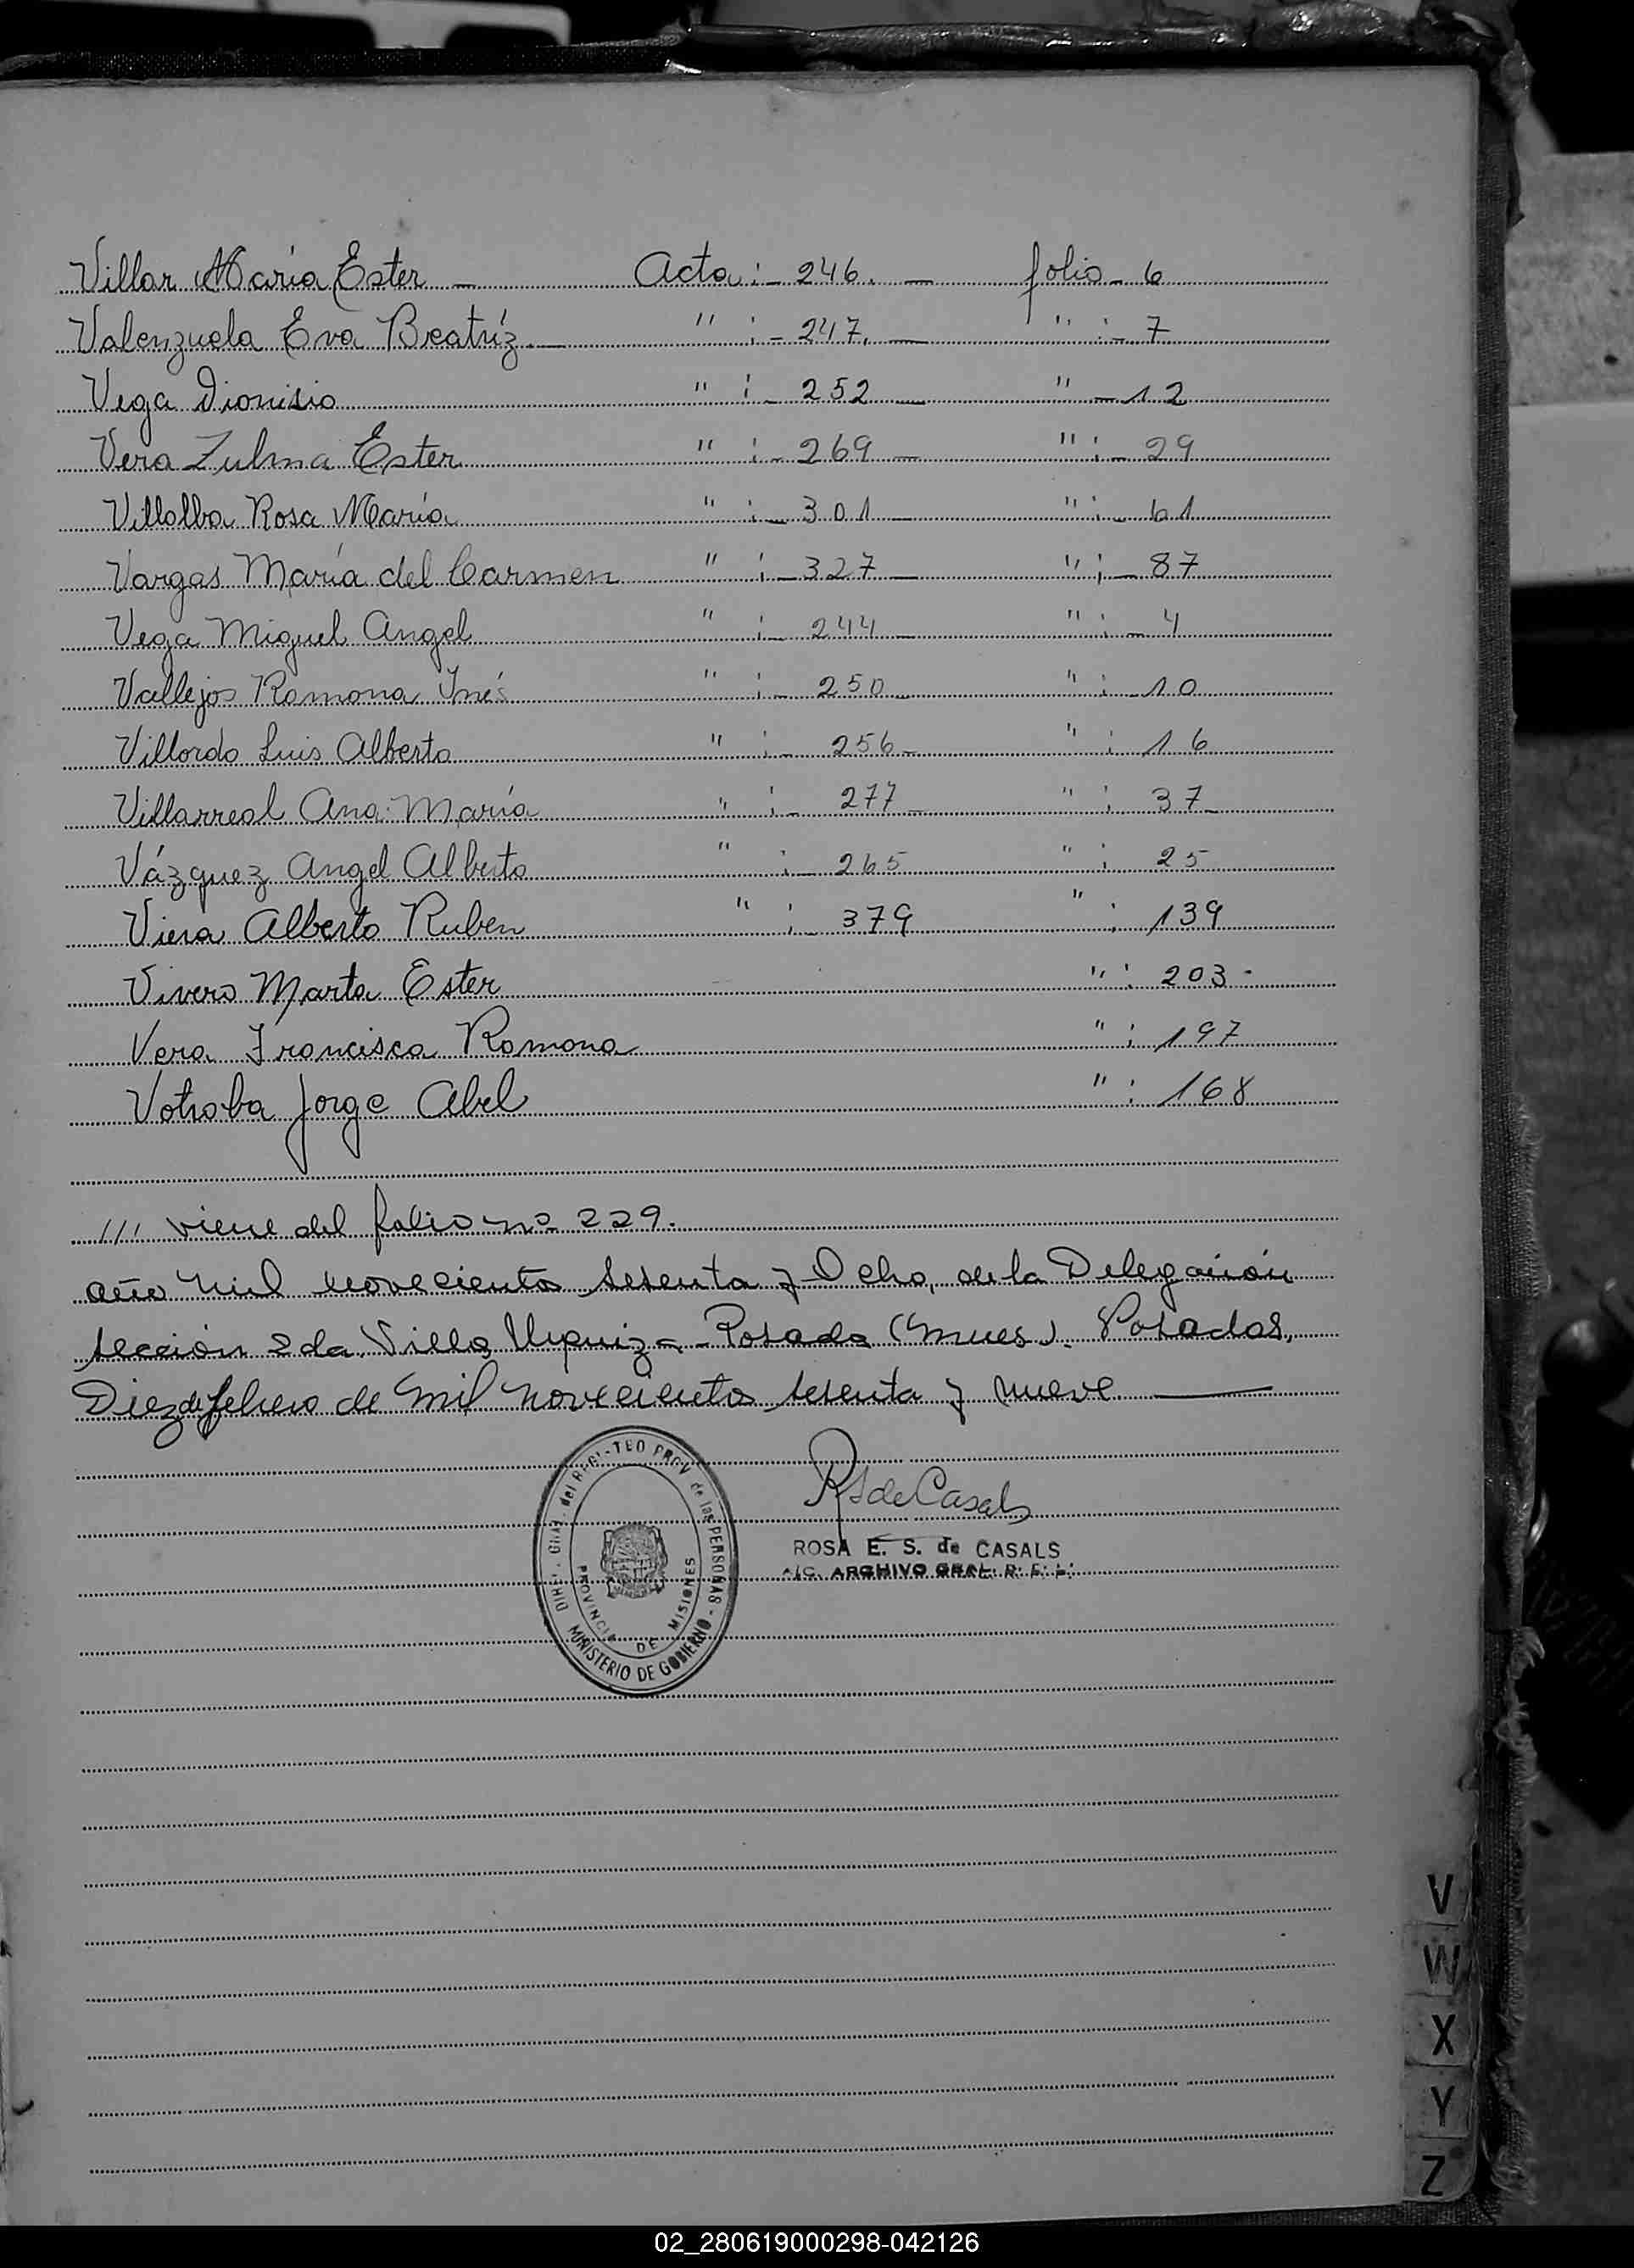 Villar María Ester — Acta:- 246. — folio - 6
Valenzuela Eva Beatríz. — " :- 247. — " :- 7
Vega Dionisio " :- 252 — " - 12
Vera Zulma Ester " :- 269 — " :- 29
Villalba Rosa María " :- 301 — " :- 61
Vargas María del Carmen " :- 327 — " :- 87
Vega Miguel Angel " :- 244 — " :- 4
Vallejos Ramona Inés " :- 250 " :- 10
Villordo Luis Alberto " :- 256- " : 16
Villarreal Ana María " :- 277- " : 37-
Vázquez Angel Alberto " :- 265 " : 25
Viera Alberto Ruben " :- 379 " : 139
Vivero Marta Ester " : 203-
Vera Francisca Ramona " : 197
Votroba Jorge Abel " : 168
/// viene del folio nº 229.
año mil novecientos sesenta y Ocho, de la Delegación
sección 2da. Villa Urquiza - Posadas (Mnes). Posadas,
Diez de febrero de mil novecientos sesenta y nueve —
R S de Casals
ROSA E. S. de CASALS
A/C. ARCHIVO GRAL.
DIREC. GRAL. del REGISTRO PROV. de las PERSONAS - MINISTERIO DE GOBIERNO
PROVINCIA DE MISIONES
V
W
X
Y
Z
02_280619000298-042126